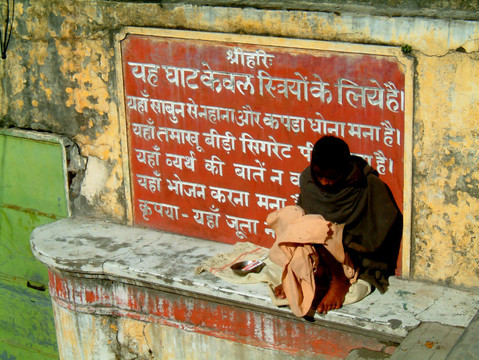 श्रीहरिः
यह घाट केवल स्त्रियों के लिये है।
यहाँ साबुन से नहाना और कपडा धोना मना है।
यहाँ तमाखू बीड़ी सिगरेट पी मना है।
यहाँ व्यर्थ की बातें न क
यहाँ भोजन करना मना
कृपया - यहाँ जूता